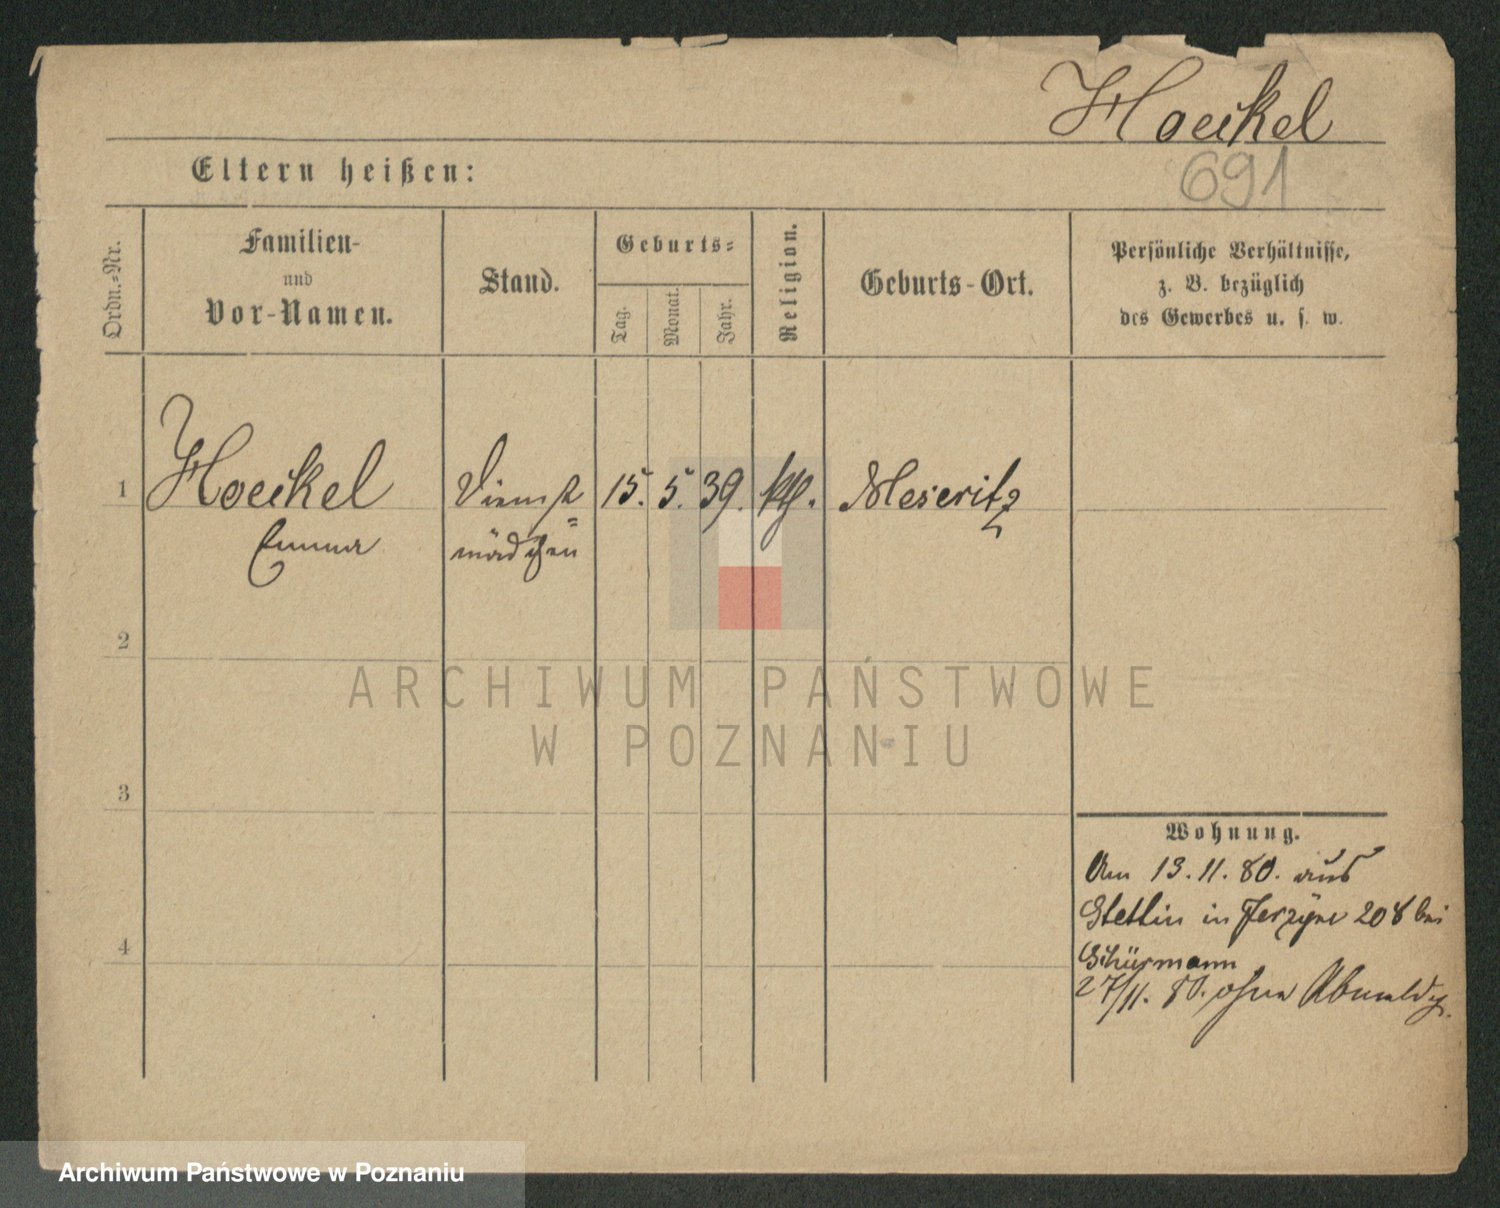 Hoeckel
691
Eltern heißen:
Ordn.-Nr.
Familien-
und
Vor-Namen.
Stand.
Geburts-
Tag.
Monat.
Jahr.
Religion.
Geburts-Ort.
Persönliche Verhältnisse,
z. B. bezüglich
des Gewerbes u. s. w.
1 Hoeckel Dienst= 15. 5. 39. kth. Meseritz
Emma mädchen
2
ARCHIWUM PAŃSTWOWE
W POZNANIU
3
Wohnung.
Am 13.11.80. aus
Stettin in 208 bei
4
Schürmann
27/11. 80. ohne Abmeldg.
Archiwum Państwowe w Poznaniu